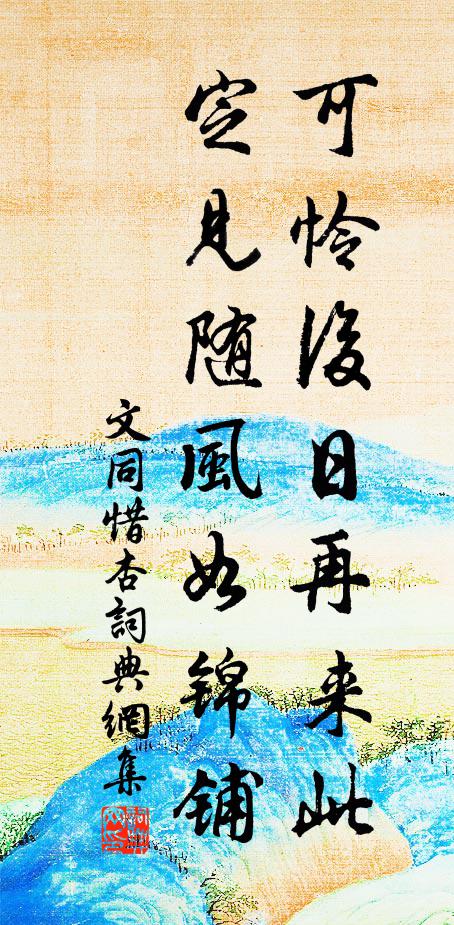 可怜後日再来此
定見随風如錦铺
文同惜杏詞典網集